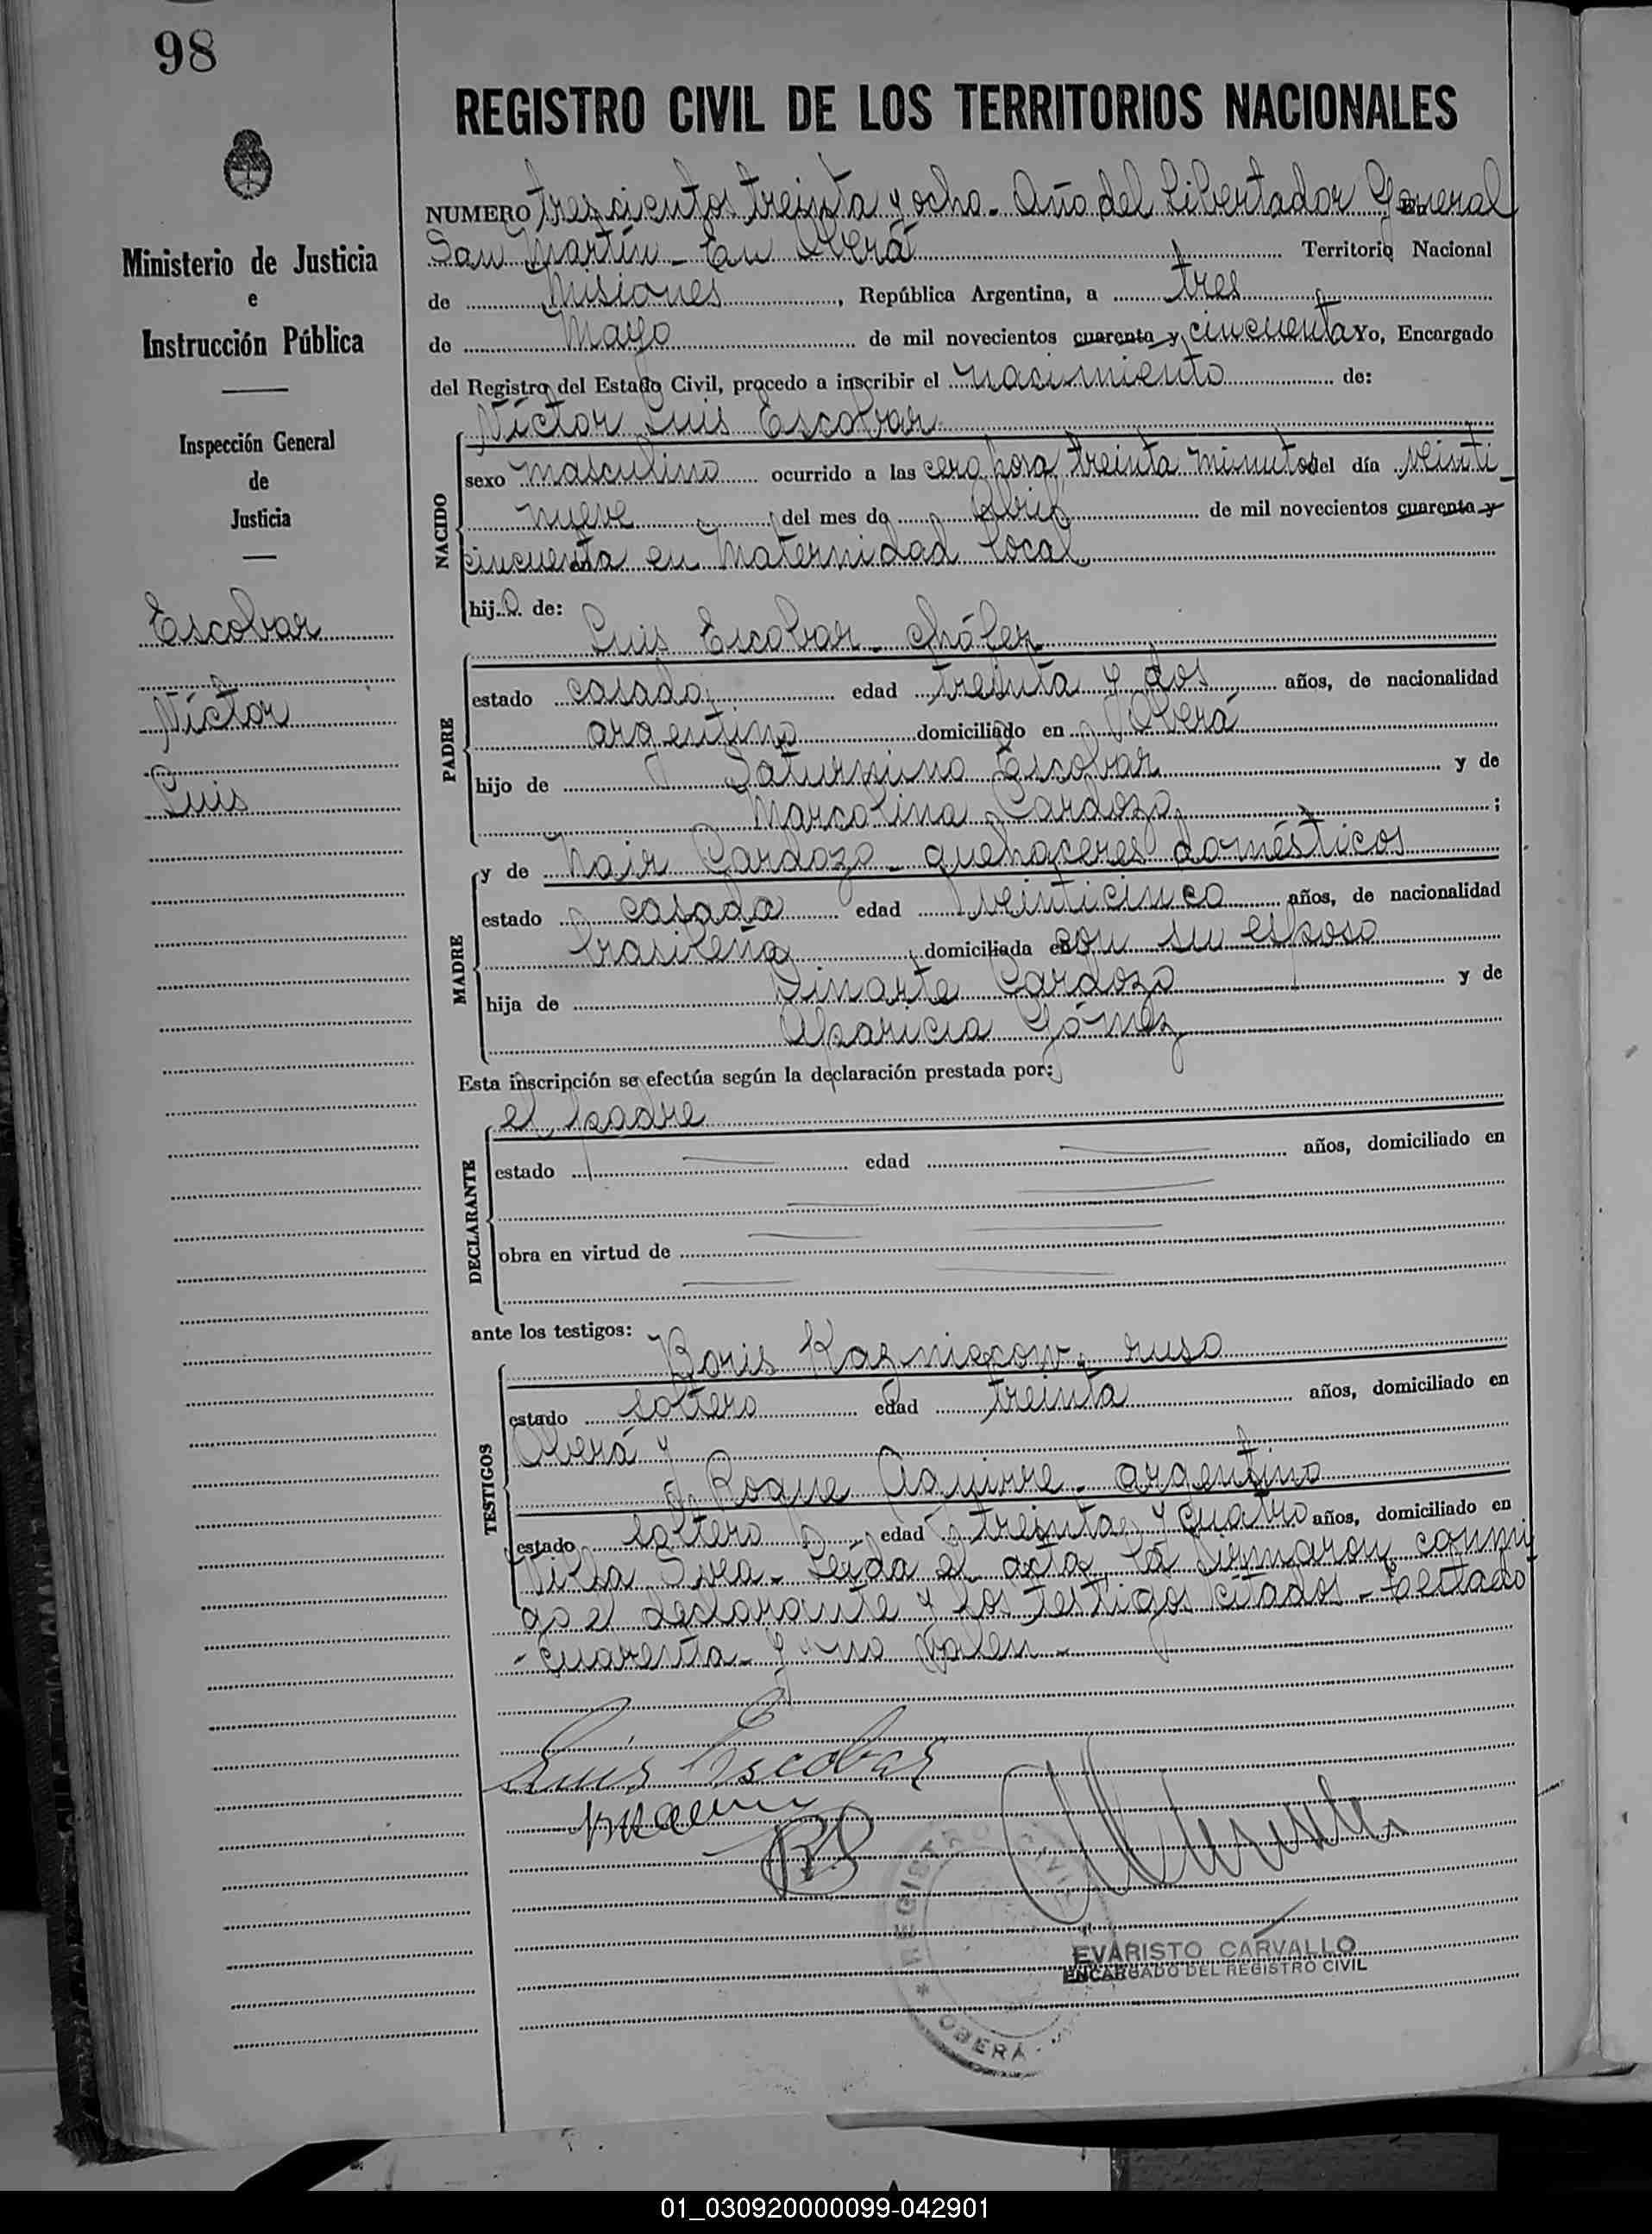 98
REGISTRO CIVIL DE LOS TERRITORIOS NACIONALES
Ministerio de Justicia
e
Instrucción Pública
Inspección General
de
Justicia
Escobar
Víctor
Luis
NUMERO trescientos treinta y ocho - Año del Libertador General
San Martín - En Oberá Territorio Nacional
de Misiones, República Argentina, a tres
de Mayo de mil novecientos cuarenta y cincuenta Yo, Encargado
del Registro del Estado Civil, procedo a inscribir el nacimiento de:
NACIDO
Víctor Luis Escobar
sexo masculino ocurrido a las cero hora treinta minutos del día veinti
nueve del mes de Abril de mil novecientos cuarenta y
cincuenta en Maternidad local
hijo de:
PADRE
Luis Escobar - chófer
estado casado edad treinta y dos años, de nacionalidad
argentino domiciliado en Oberá
hijo de Saturnino Escobar y de
Marcolina Cardozo;
MADRE
y de Nair Cardozo - quehaceres domésticos
estado casada edad veinticinco años, de nacionalidad
brasileña domiciliada en con su esposo
hija de Dinarte Cardozo y de
Aparicia Gómez
Esta inscripción se efectúa según la declaración prestada por:
DECLARANTE
el padre
estado edad años, domiciliado en
obra en virtud de
ante los testigos:
TESTIGOS
Boris Kazniecow - ruso
estado soltero edad treinta años, domiciliado en
Oberá y
Roque Aguirre - argentino
estado soltero edad treinta y cuatro años, domiciliado en
Villa Leída el acta la firmaron conmi
go el declarante y los testigos citados - Testado
- cuarenta - y - no valen -
Luis Escobar
REGISTRO CIVIL
* OBERÁ
EVARISTO CARVALLO
ENCARGADO DEL REGISTRO CIVIL
01_030920000099-042901